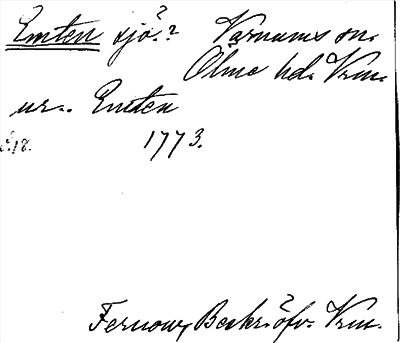 Emten sjö? Varnums sn.
Ölme hd. Vrm.
ur. Emten
s. 18. 1773.
Fernow, Beskr. öfv. Vrm.